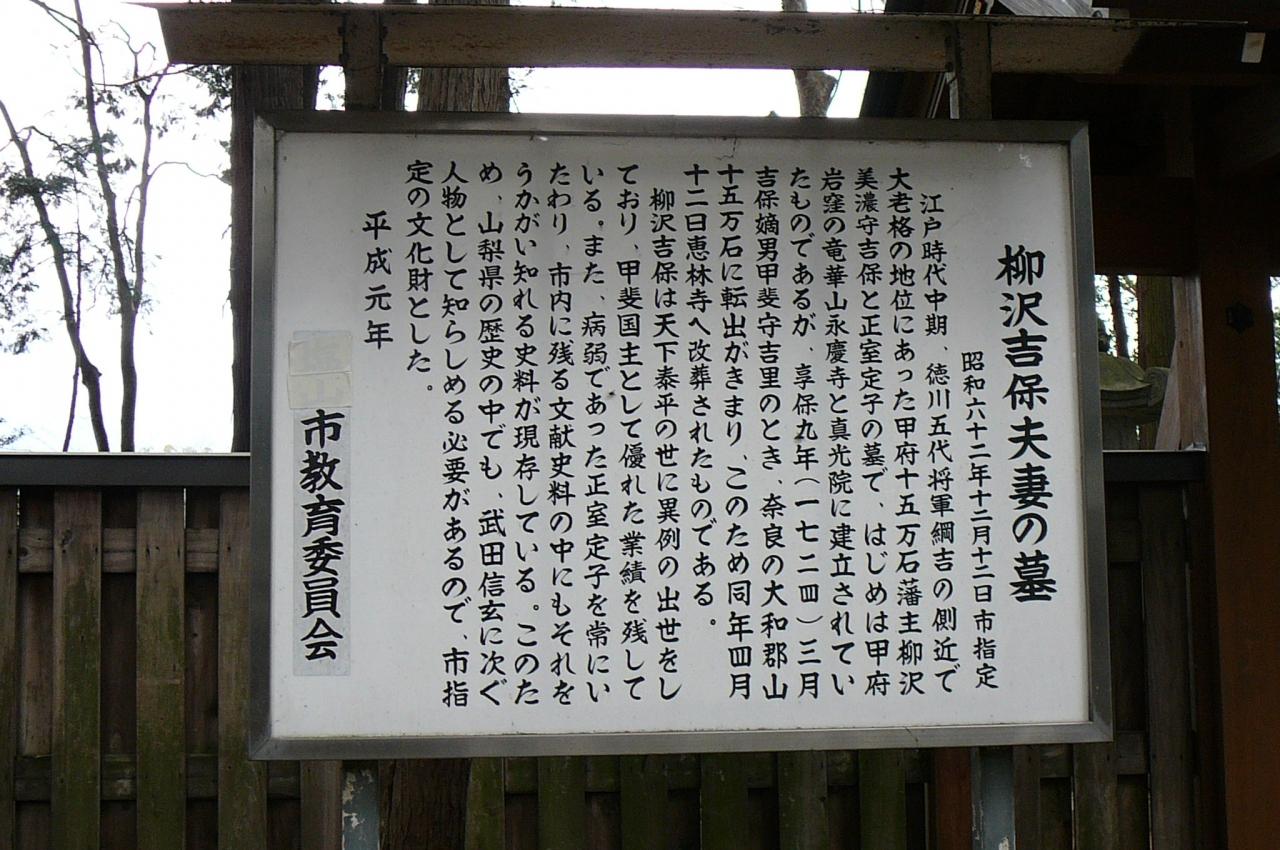 柳沢吉保夫妻の墓
昭和六十二年十二月十二日市指定
江戸時代中期、徳川五代将軍綱吉の側近で
大老格の地位にあった甲府十五万石藩主柳沢
美濃守吉保と正室定子の墓で、はじめは甲府
岩窪の竜華山永慶寺と真光院に建立されてい
たものであるが、享保九年(一七二四)三月
吉保嫡男甲斐守吉里のとき、奈良の大和郡山
十五万石に転出がきまり、このため同年四月
十二日恵林寺へ改葬されたものである。
柳沢吉保は天下泰平の世に異例の出世をし
ており、甲斐国主として優れた業績を残して
いる。また、病弱であった正室定子を常にい
たわり、市内に残る文献史料の中にもそれを
うかがい知れる史料が現存している。このた
め、山梨県の歴史の中でも、武田信玄に次ぐ
人物として知らしめる必要があるので、市指
定の文化財とした。
平成元年
市教育委員会